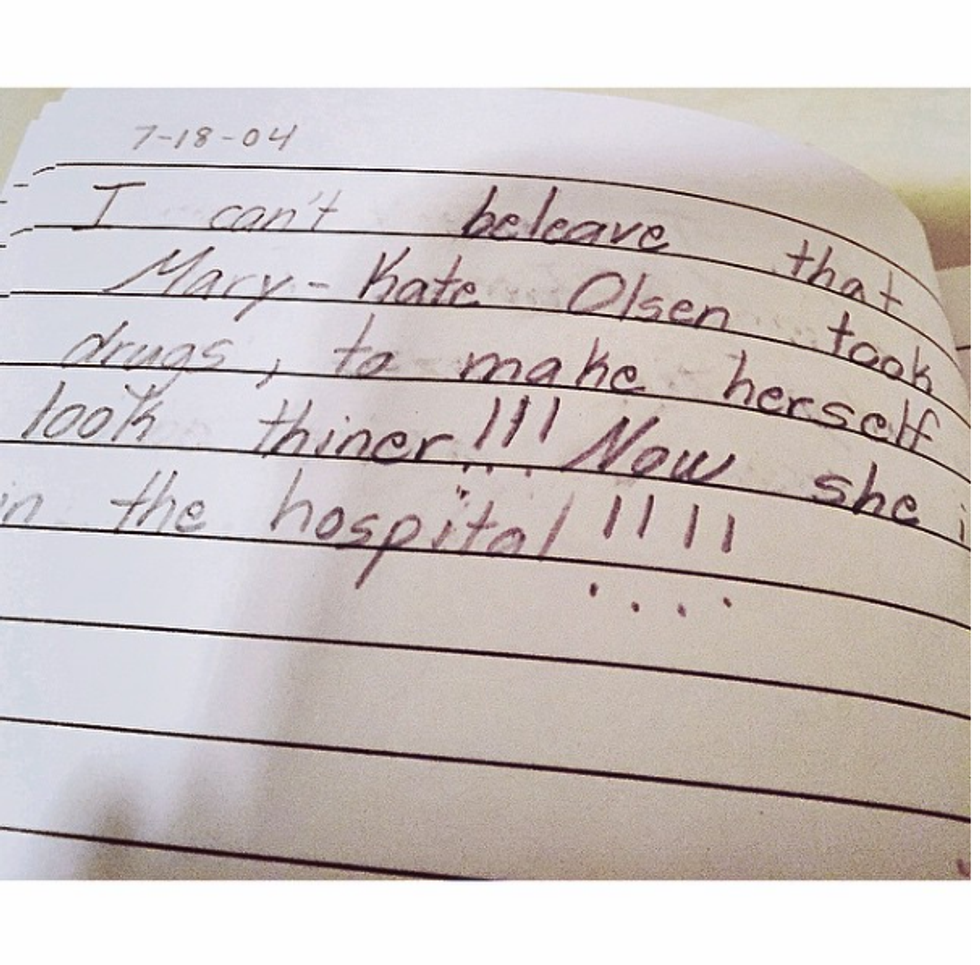 7-18-04
I can't beleave that
Mary-Kate Olsen took
drugs, to make herself
look thiner!!! Now she i
in the hospital!!!!